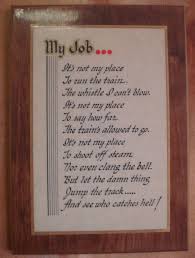 My Job...
It's not my place
To run the train..
The whistle I can't blow.
It's not my place
To say how far
The train's allowed to go.
It's not my place
To shoot off steam
Nor even clang the bell.
But let the damn thing
Jump the track.....
And see who catches hell!